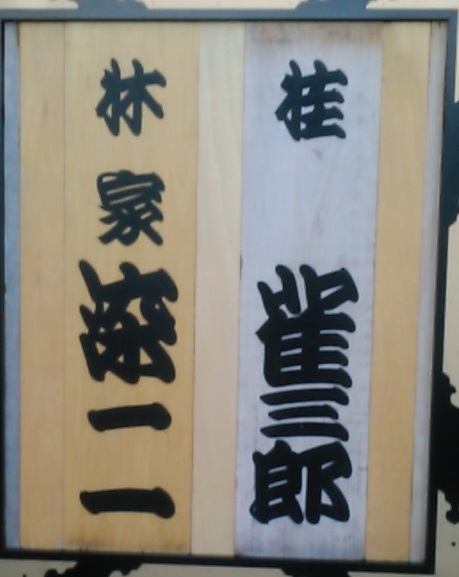 桂 雀三郎
林家染二